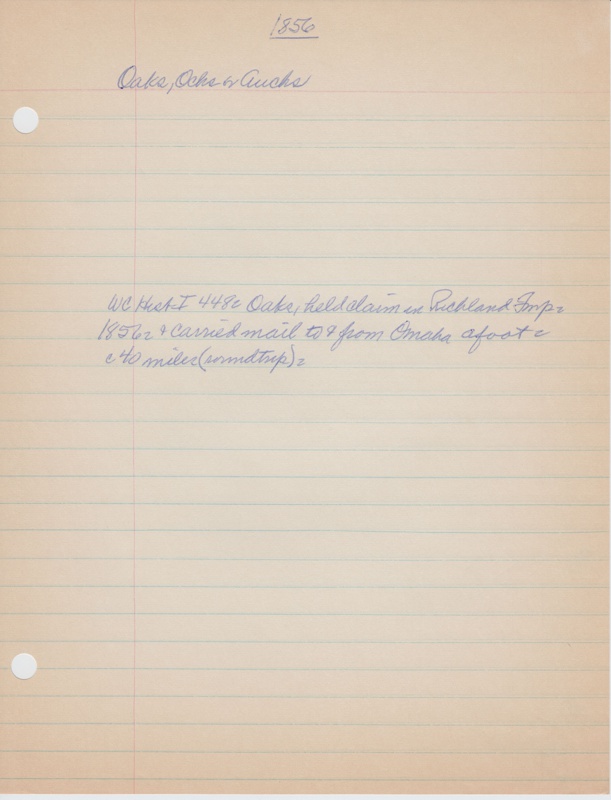 1856
Oaks, Ochs or Auchs
WC Hist I 448: Oaks, held claim in Richland Tmp.
1856 & carried mail to & from Omaha afoot -
c 40 miles (roundtrip).